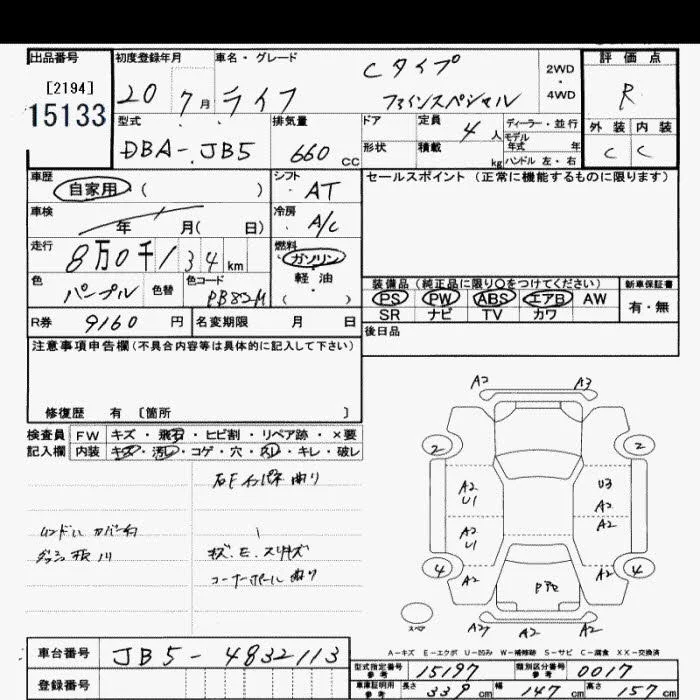 出品番号
[2194]
15133
初度登録年月
20 7月
車名・グレード
ライフ
Cタイプ
ファインスペシャル
2WD
・
4WD
評価点
R
外装 内装
C C
型式
DBA-JB5
排気量
660 cc
ドア
定員
4人
形状
積載
kg
ディーラー・並行
モデル年式 年
ハンドル 左・右
車歴
自家用 ( )
シフト
AT
車検
年 月( 日)
冷房
A/C
走行
8万0千134 km
燃料
ガソリン
軽油
( )
色
パープル
色替
色コード
PB82M
R券 9160 円
名変期限 月 日
セールスポイント (正常に機能するものに限ります)
装備品 (純正品に限り○をつけてください)
PS PW ABS エアB AW
SR ナビ TV カワ
新車保証書
有・無
後日品
注意事項申告欄(不具合内容等は具体的に記入して下さい)
修復歴 有 〔箇所 〕
検査員
記入欄
FW キズ・飛石・ヒビ割・リペア跡・×要
内装 キズ・汚レ・コゲ・穴・スレ・キレ・破レ
右Fインパネ曲り
ハンドル カバー有
キズ、E、スリキズ
コーナーポール曲り
A2 A3
2 2
A2
U1
U3
A2
A2
U1
A2
4 4
A2
A2
PP2
スペア
A2 A2
A-キズ E-エクボ U-凹み W-補修跡 S-サビ C-腐食 XX-交換済
車台番号 JB5-4832113
登録番号
型式指定番号
参考
15197
類別区分番号
参考
0017
車庫証明用
参考
長さ 339 cm 幅 147 cm 高さ 157 cm